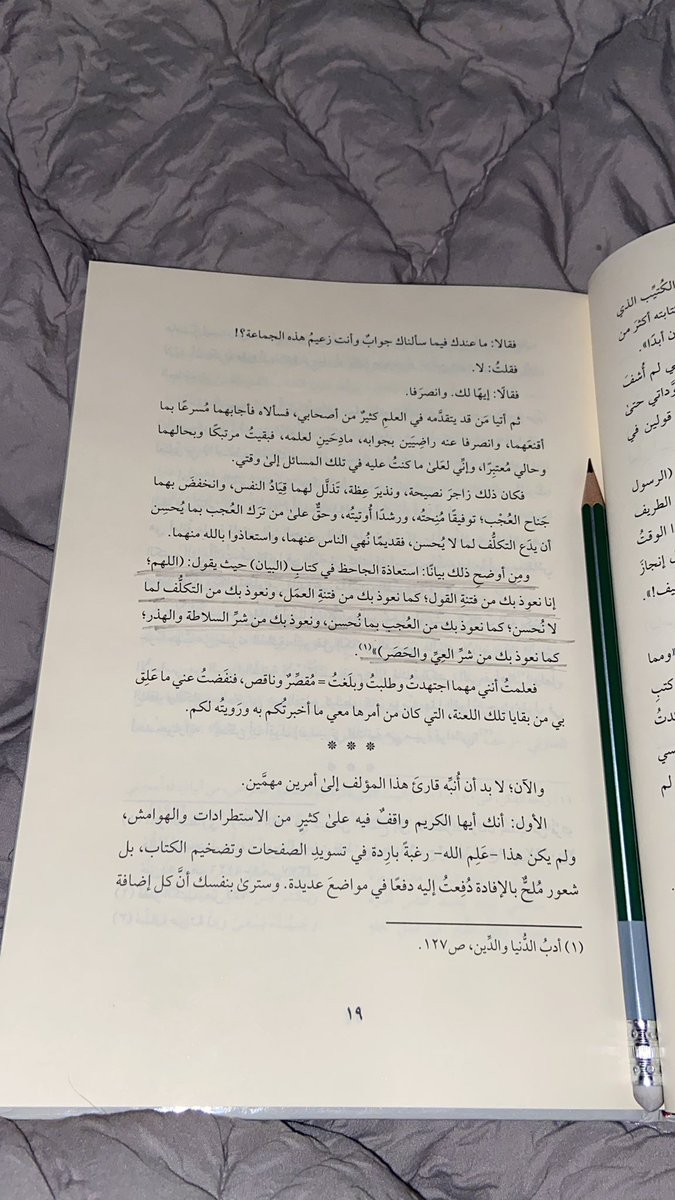 فقالا: ما عندك فيما سألناك جوابٌ وأنت زعيمُ هذه الجماعة؟!
فقلتُ: لا.
فقالَا: إيهًا لك. وانصرَفا.
ثم أتيا مَن قد يتقدَّمه في العلمِ كثيرٌ من أصحابي، فسألاه فأجابهما مُسرعًا بما
أقنَعهما، وانصرفا عنه راضِيَين بجوابه، مادِحَينِ لعلمه، فبقيتُ مرتبكًا وبحالهما
وحالي مُعتبِرًا، وإنِّي لعَلىٰ ما كنتُ عليه في تلك المسائل إلىٰ وقتي.
فكان ذلك زاجرَ نصيحة، ونذيرَ عِظة، تَذلَّل لهما قِيَادُ النفس، وانخفَضَ بهما
جَناح العُجْب؛ توفيقًا مُنِحتُه، ورشدًا أُوتيتُه، وحقٌّ علىٰ من ترَك العُجب بما يُحْسِن
أن يدَع التكلُّف لما لا يُحسن، فقديمًا نُهي الناس عنهما، واستعاذوا بالله منهما.
ومِن أوضحِ ذلك بيانًا: استعاذة الجاحظ في كتابِ (البيان) حيث يقول: (اللهم؛
إنا نعوذ بك من فتنةِ القول؛ كما نعوذ بك من فتنةِ العمَل، ونعوذ بك من التكلُّف لما
لا نُحسن؛ كما نعوذ بك من العُجب بما نُحسِن، ونعوذ بك من شرِّ السلاطة والهذر؛
كما نعوذ بك من شرِّ العِيِّ والحَصَر)»(١).
فعلمتُ أنني مهما اجتهدتُ وطلبتُ وبلَغتُ = مُقصِّرٌ وناقص، فنفَضتُ عني ما علِق
بي من بقايا تلك اللعنة، التي كان من أمرها معي ما أخبرتُكم به ورَويتُه لكم.
* * *
والآن؛ لا بد أن أُنبِّه قارئَ هذا المؤلف إلىٰ أمرين مهمَّين.
الأول: أنك أيها الكريم واقفٌ فيه علىٰ كثيرٍ من الاستطرادات والهوامش،
ولم يكن هذا -عَلِم الله- رغبةً بارِدة في تسويدِ الصفحات وتضخيم الكتاب، بل
شعور مُلحٌّ بالإفادة دُفِعتُ إليه دفعًا في مواضعَ عديدة. وسترىٰ بنفسك أنَّ كل إضافة
(١) أدبُ الدُّنيا والدِّين، ص١٢٧.
١٩
الكُتيِّب الذي
كتابته أكثرَ من
أبدًا».
لم أُشفَ
حتىٰ
قولين في
(الرسول
الطريف
الوقتُ
إنجازَ
«ومما
كتبِ
لم